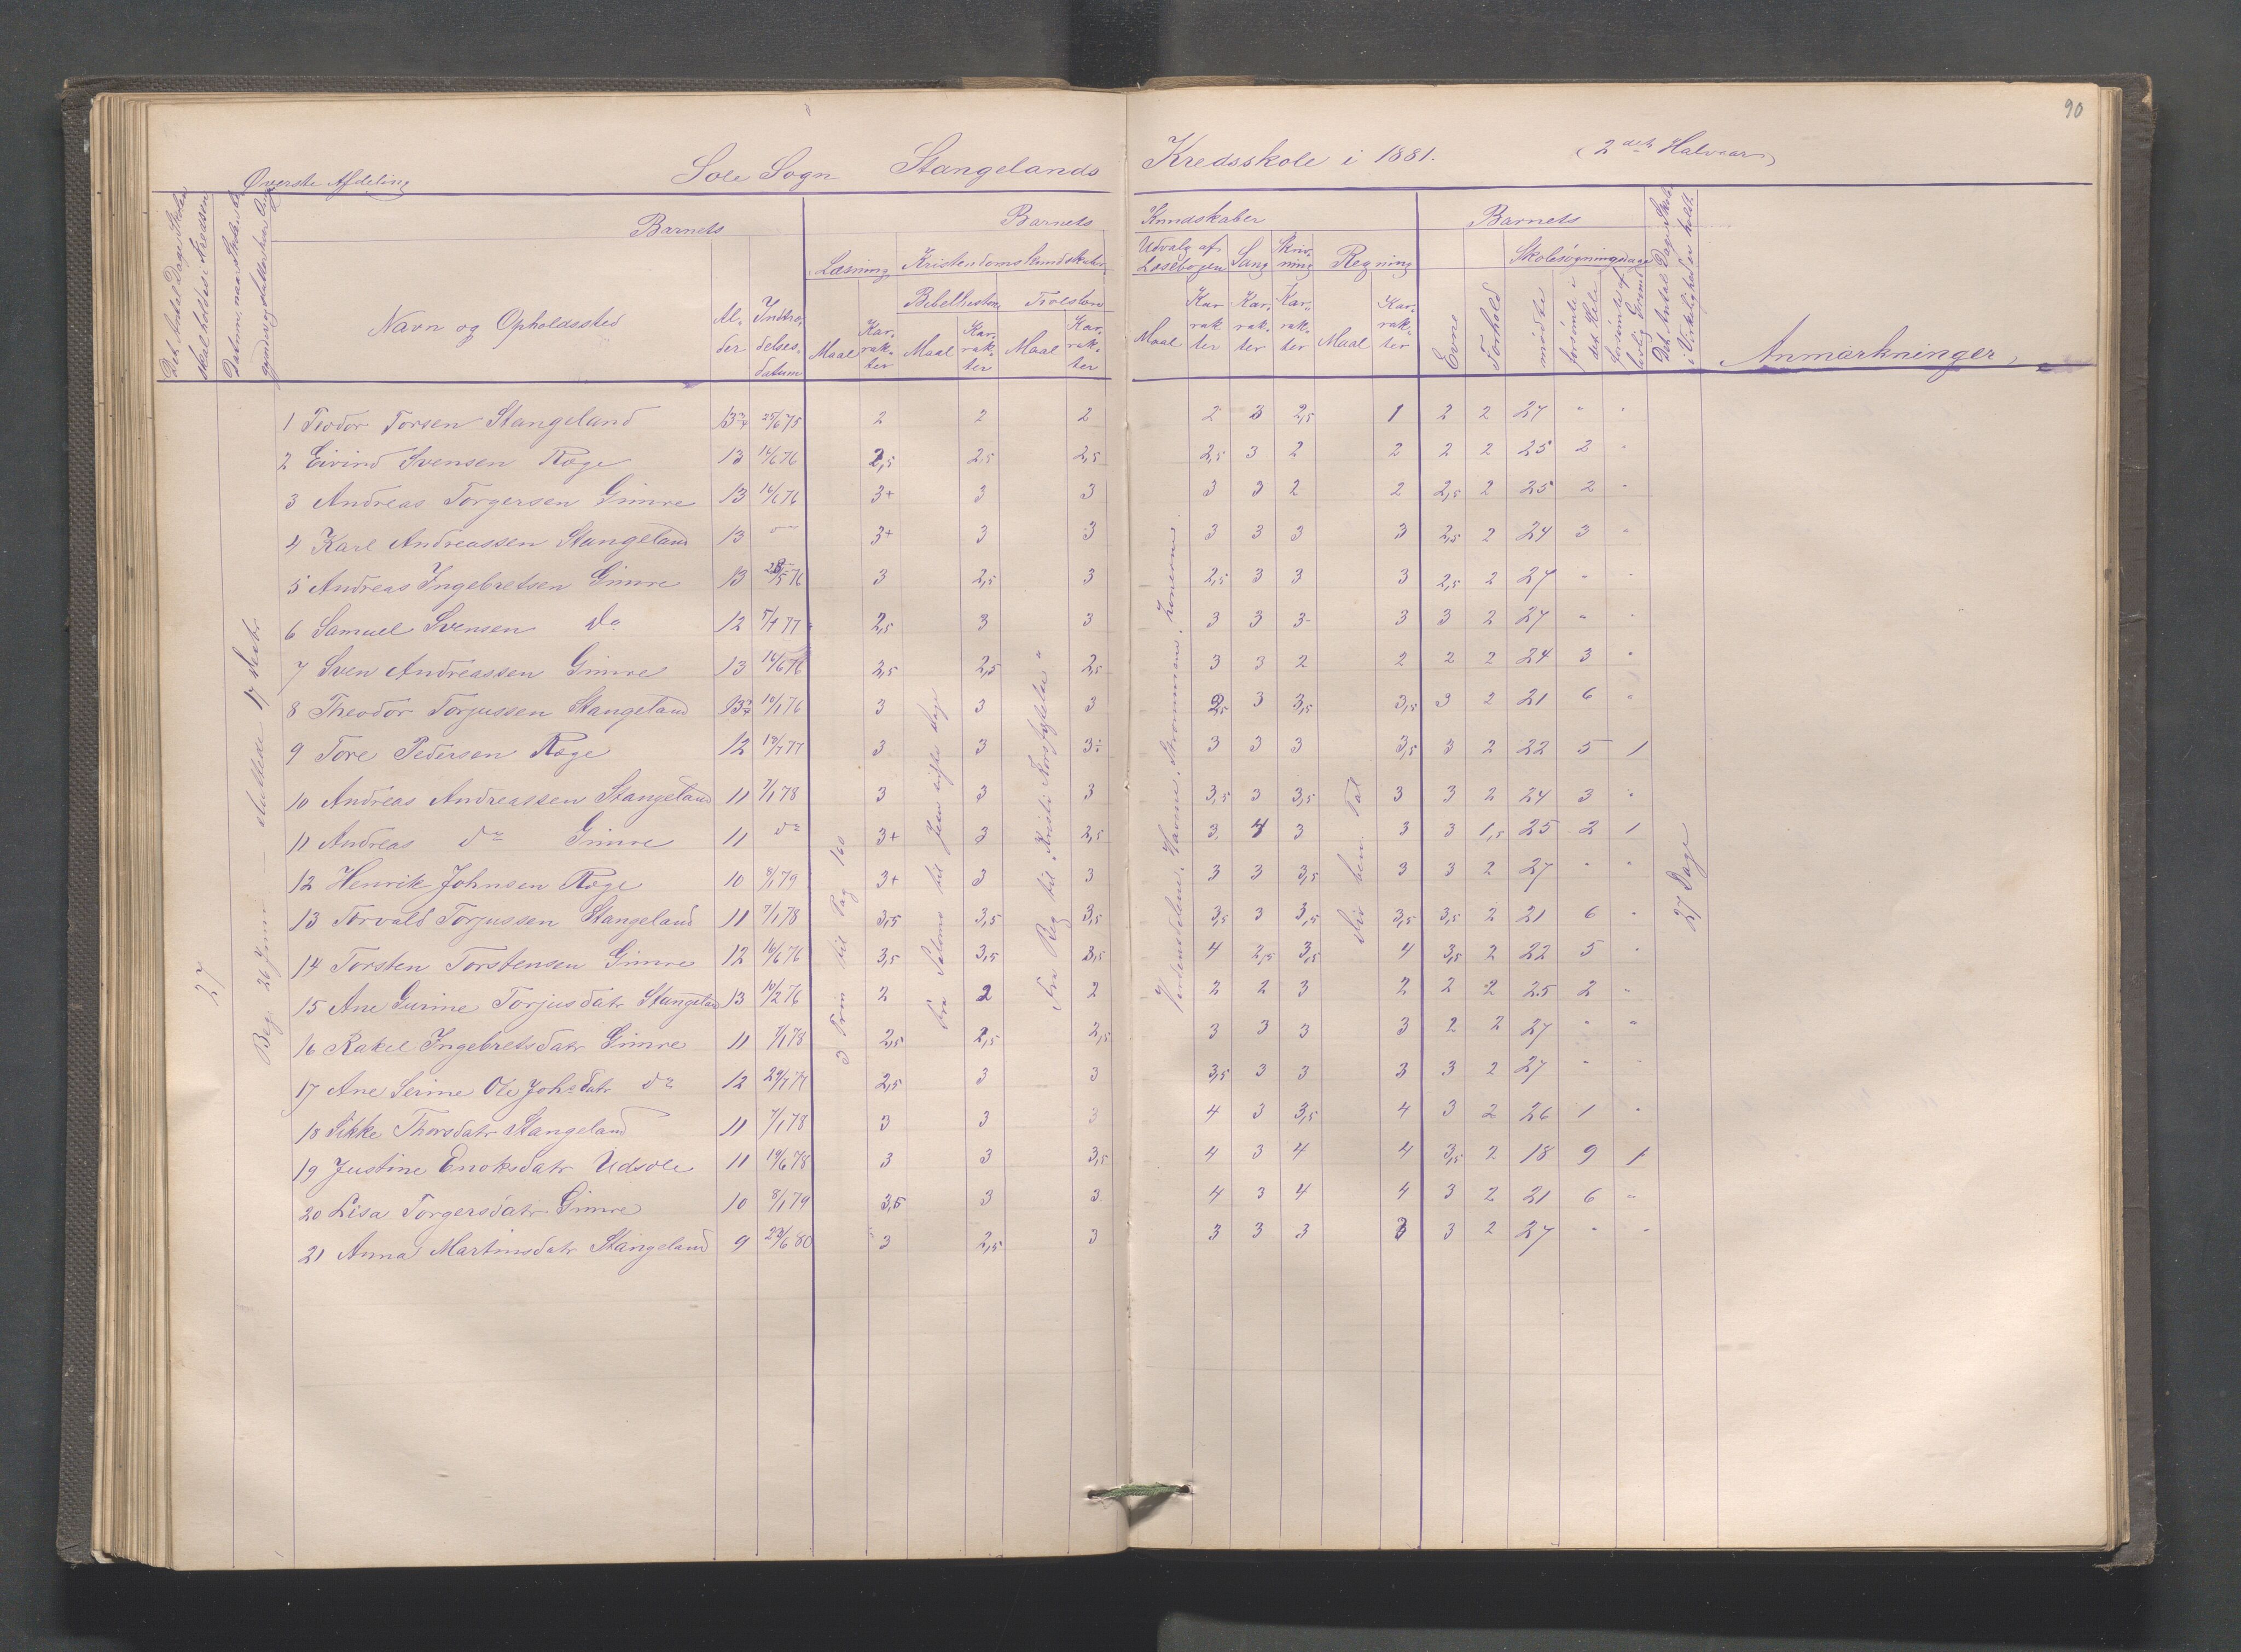 90
Øverste Afdeling Sole Sogn Stangelands Kredsskole i 1881. (2det Halvaar)
Det Antal Dage Skolen skal holdes i Kredsen
Barnets Barnets Kundskaber Barnets
Læsning Kristendomskundskab Udvalg af Læsebogen Sang Skrivning Regning Skolesøgningsdage
Bibelhistorie Troeslære
Navn og Opholdssted Alder Indtrædelsesdatum Maal Karakter Maal Karakter Maal Karakter Maal Karakter Karakter Karakter Maal Karakter Evne Forhold mødte forsømte i det Hele Anmærkninger
1 Teodor Torsen Stangeland 2 2 2 2 3 2,5 1 2 2 27 " "
2 Eivind Svensen Ræge 13 14/6 76 2,5 2,5 2,5 2,5 3 2 2 2 2 25 2 "
3 Andreas Torgersen Gimre 13 14/6 76 3+ 3 3 3 3 2 2 2,5 2 25 2 "
4 Karl Andreassen Stangeland 13 " 3+ 3 3 3 3 3 3 2,5 2 24 3 "
5 Andreas Ingebretsen Gimre 13 3 2,5 3 2,5 3 3 3 2,5 2 27 " "
6 Samuel Svensen do 12 2,5 3 3 3 3 3- 3 3 2 27 " "
7 Sven Andreassen Gimre 13 14/6 76 2,5 2,5 2,5 3 3 2 2 2 2 24 3 "
8 Theodor Torjussen Stangeland 10/1 76 3 3 3 2,5 3 3,5 3,5 3 2 21 6 "
9 Tore Pedersen Ræge 12 3 3 3÷ 3 3 3 3,5 3 2 22 5 1
10 Andreas Andreassen Stangeland 11 7/1 78 3 3 3 3,5 3 3,5 3 3 2 24 3 "
11 Andreas do Gimre 11 do 3+ 3 2,5 3 4 3 3 3 1,5 25 2 1
12 Henrik Johnsen Ræge 10 8/1 79 3+ 3 3 3 3 3,5 3 3 2 27 " "
13 Torvald Torjussen Stangeland 11 7/1 78 3,5 3,5 3,5 3,5 3 3,5 3,5 3,5 2 21 6 "
14 Torsten Torstensen Gimre 12 3,5 3,5 3,5 4 2,5 3,5 4 3,5 2 22 5 "
15 Ane Gurine Torjusdatr Stangeland 13 10/2 76 2 2 2 2 2 3 2 2 2 25 2 "
16 Rakel Ingebretsdatr Gimre 11 7/1 78 2,5 2,5 2,5 3 3 3 3 2 2 27 " "
17 Ane Serine Ole Johsdatr do 12 2,5 3 3 3,5 3 3 3 3 2 27 " "
18 Sikke Thorsdatr Stangeland 11 7/1 78 3 3 3 4 3 3,5 4 3 2 26 1 "
19 Justine Enoksdatr Udsole 11 19/6 78 3 3 3,5 4 3 4 4 3,5 2 18 9 1
20 Lisa Torgersdatr Gimre 10 8/1 79 3,5 3 3 4 3 4 4 3 2 21 6 "
21 Anna Martinsdatr Stangeland 9 23/6 80 3 2,5 3 3 3 3 3 3 2 27 " "
27
Beg. 26 Juni
3 Trin til Pag 160
Fra Reg til
ben. Tal
27 Dage